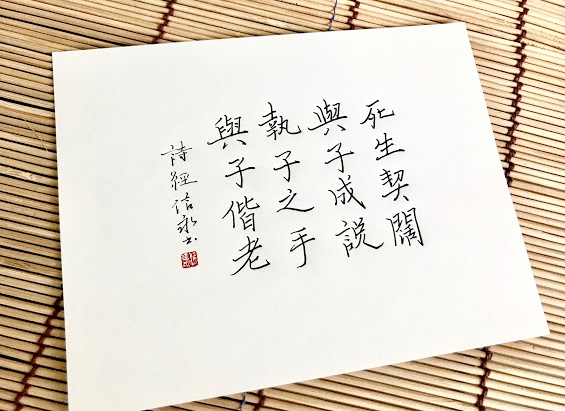 死生契闊
與子成説
執子之手
與子偕老
詩經信永书